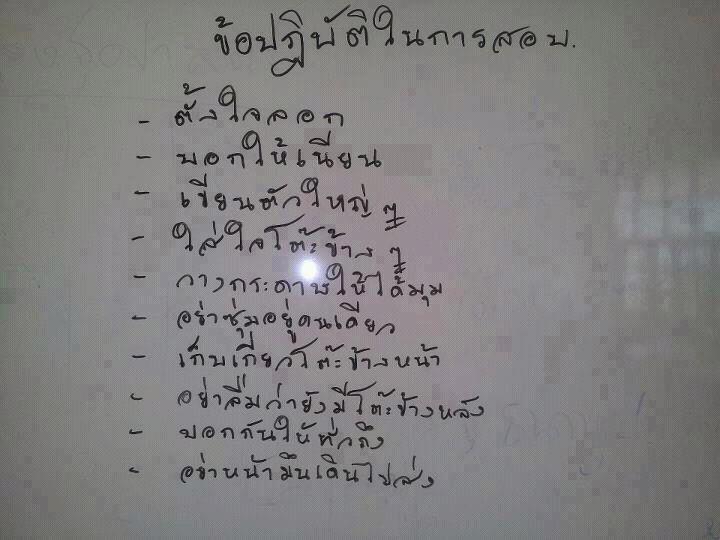 ข้อปฏิบัติในการสอบ.
- ตั้งใจลอก
- บอกให้เนียน
- เขียนตัวใหญ่ ๆ
- ใส่ใจโต๊ะข้าง ๆ
- วางกระดาษให้ได้มุม
- อย่าซุ่มอยู่คนเดียว
- เก็บเกี่ยวโต๊ะข้างหน้า
- อย่าลืมว่ายังมีโต๊ะข้างหลัง
- บอกกันให้ทั่วถึง
- อย่าหน้ามึนเดินไปส่ง